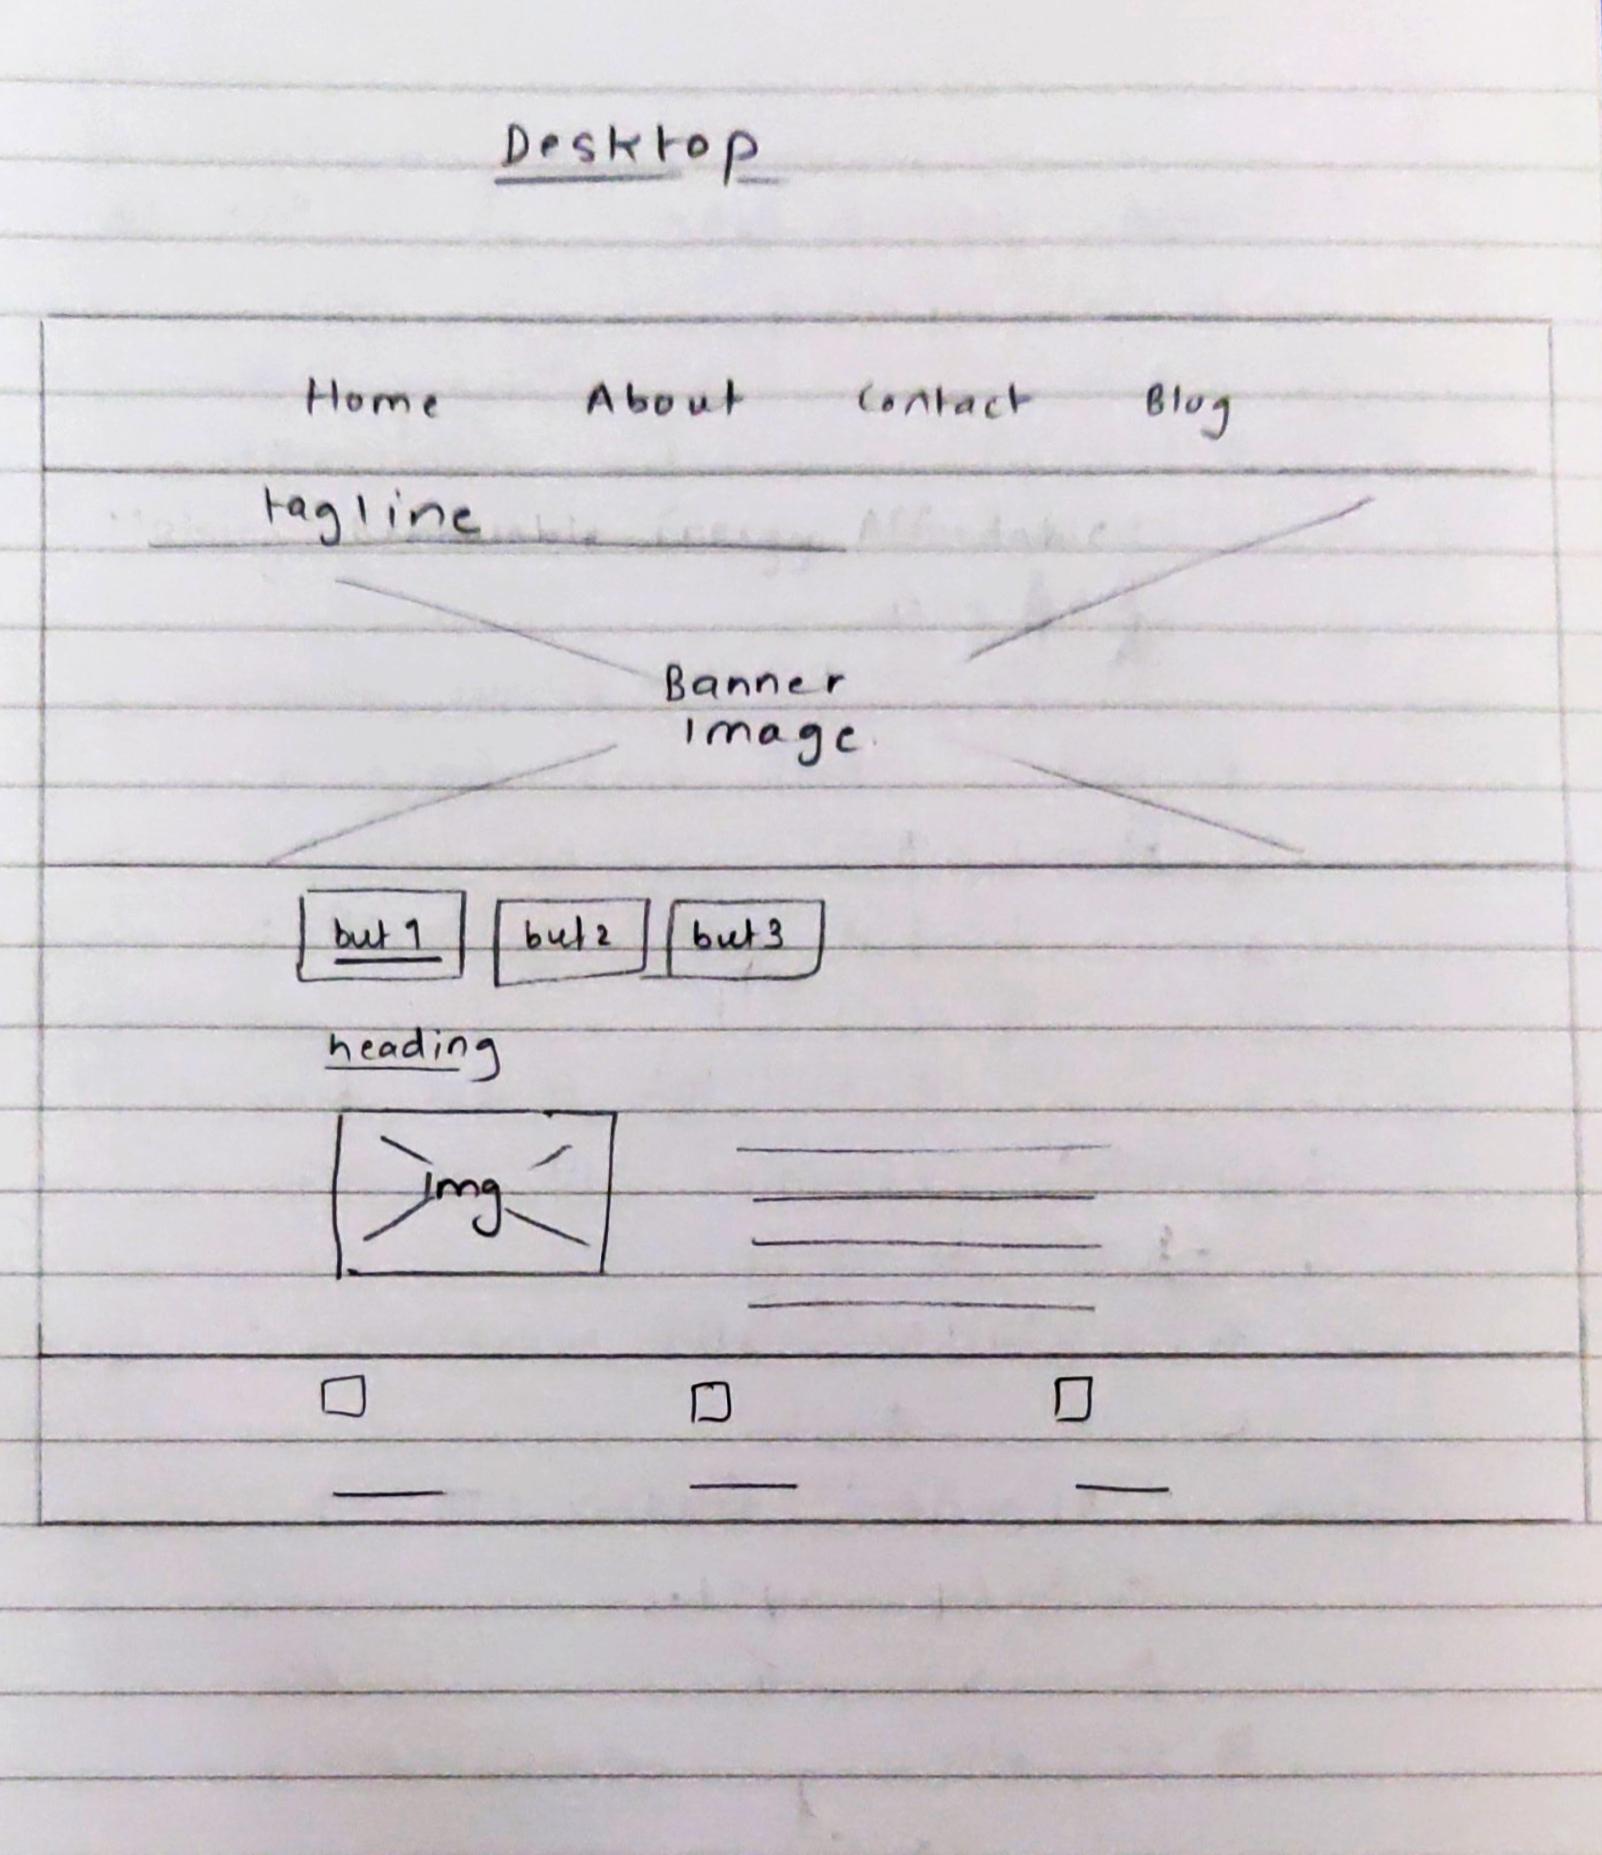 Desktop
Home About Contact Blog
tagline
Banner
Image
but 1 but 2 but 3
heading
img